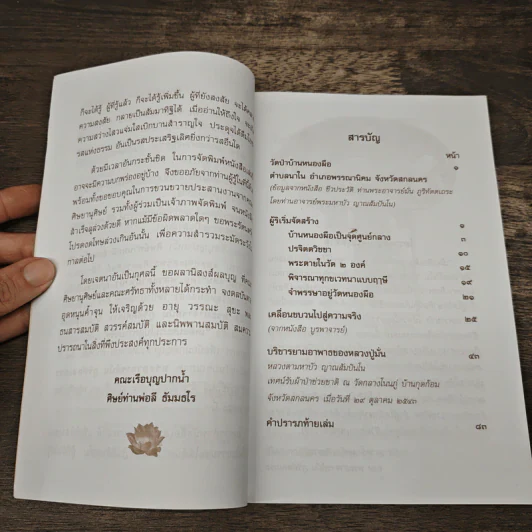 ก็จะได้รู้ ผู้ที่รู้แล้ว ก็จะได้รู้เพิ่มขึ้น ผู้ที่ยังสงสัย จะได้
ความสงสัย กลายเป็นสัมมาทิฐิได้ เมื่ออ่านให้ถึงใจ
ความสว่างไสวแจ่มใสเบิกบานสำราญใจ ประดุจได้ลิ้ม
รสแห่งธรรม อันเป็นรสประเสริฐเลิศยิ่งกว่ารสอื่นใด
ด้วยมีเวลาอันกระชั้นชิด ในการจัดพิมพ์หนังสือ
อาจจะมีความบกพร่องอยู่บ้าง จึงขออภัยจากท่านผู้รู้ในที่นี้
พร้อมทั้งขอขอบคุณในการขวนขวายประสานงานจาก
ศิษยานุศิษย์ รวมทั้งผู้ร่วมเป็นเจ้าภาพจัดพิมพ์ จนหนังสือ
สำเร็จลุล่วงด้วยดี หากแม้มีข้อผิดพลาดใดๆ ขอพระรัตน
โปรดงดโทษล่วงเกินอันนั้น เพื่อความสำรวมระมัดระวัง
กาลต่อไป
โดยเจตนาอันเป็นกุศลนี้ ขอผลานิสงส์ผลบุญ ที่คณะ
ศิษยานุศิษย์และคณะศรัทธาทั้งหลายได้กระทำ จงดลบันดาล
อุดหนุนค้ำจุน ให้เจริญด้วย อายุ วรรณะ สุขะ พละ
ธนสารสมบัติ สวรรค์สมบัติ และนิพพานสมบัติ สมความ
ปรารถนาในสิ่งที่พึงประสงค์ทุกประการ
คณะเรือบุญปากน้ำ
ศิษย์ท่านพ่อลี ธัมมธโร
สารบัญ
หน้า
วัดป่าบ้านหนองผือ ๑
ตำบลนาใน อำเภอพรรณานิคม จังหวัดสกลนคร
(ข้อมูลจากหนังสือ ชีวประวัติ ท่านพระอาจารย์มั่น ภูริทัตตเถระ
โดยท่านอาจารย์พระมหาบัว ญาณสัมปันโน)
ผู้ริเริ่มจัดสร้าง ๑
บ้านหนองผือเป็นจุดศูนย์กลาง ๓
ปรจิตตวิชชา ๑๐
พระตายในวัด ๒ องค์ ๑๕
พิจารณาทุกขเวทนาแบบฤาษี ๑๙
จำพรรษาอยู่วัดหนองผือ ๒๑
เคลื่อนขบวนไปสู่ความจริง ๒๕
(จากหนังสือ บูรพาจารย์)
บริขารยามอาพาธของหลวงปู่มั่น ๔๓
หลวงตามหาบัว ญาณสัมปันโน
เทศน์รับผ้าป่าช่วยชาติ ณ วัดกลางโนนภู่ บ้านกุดก้อม
จังหวัดสกลนคร เมื่อวันที่ ๒๙ ตุลาคม ๒๕๔๓
คำปรารภท้ายเล่ม ๘๓